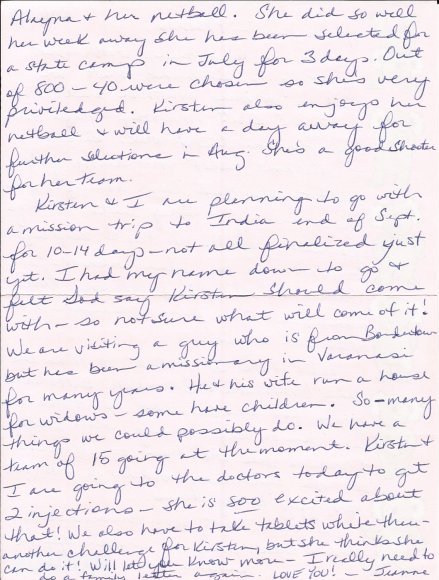 & her netball. She did so well
her week away she has been selected for
a state camp in July for 3 days. Out
of 800 – 40 were chosen so she's very
priviledged. Kirsten also enjoys her
netball & will have a day away for
further selections in Aug. She's a good shooter
for her team.
Kirsten & I are planning to go with
a mission trip to India end of Sept.
for 10-14 days – not all finalized just
yet. I had my name down to go &
felt God say Kirsten should come
with – so not sure what will come of it!
We are visiting a guy who is from Bordertown
but has been a missionary in Varanasi
for many years. He & his wife run a house
for widows – some have children. So many
things we could possibly do. We have a
team of 15 going at the moment. Kirsten &
I are going to the doctors today to get
2 injections – she is soo excited about
that! We also have to take tablets while there –
another challenge for Kirsten, but she thinks she
can do it! Will let you know more – I really need to
do a family letter again. LOVE YOU! Jeanne